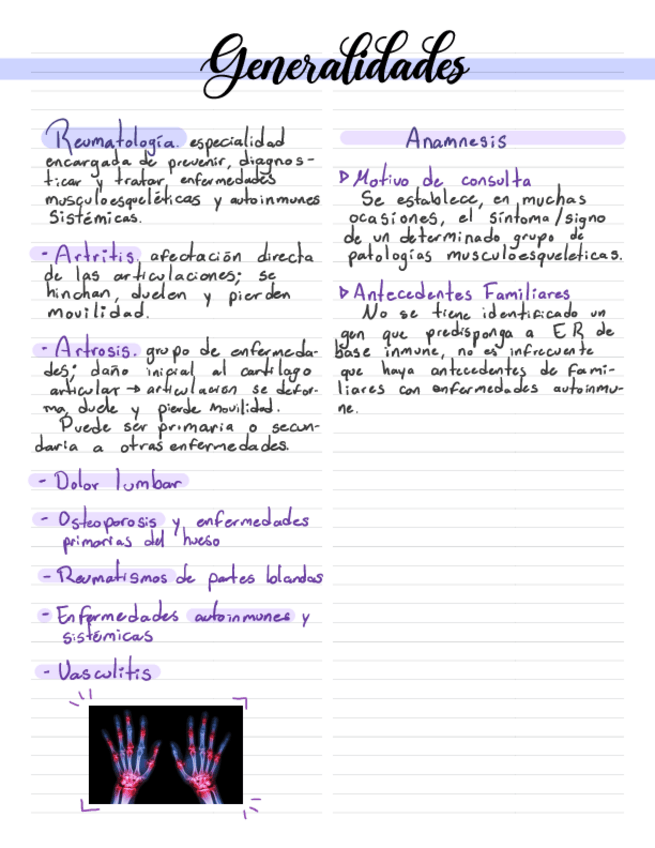 Generalidades
Reumatología. especialidad
encargada de prevenir, diagnos-
ticar y tratar enfermedades
musculoesqueléticas y autoinmunes
Sistémicas.
- Artritis. afectación directa
de las articulaciones; se
hinchan, duelen y pierden
movilidad.
- Artrosis. grupo de enfermeda-
des; daño inicial al cartílago
articular → articulación se defor-
ma, duele y pierde movilidad.
Puede ser primaria o secun-
daria a otras enfermedades.
- Dolor lumbar
- Osteoporosis y enfermedades
primarias del hueso
- Reumatismos de partes blandas
- Enfermedades autoinmunes y
sistémicas
- Vasculitis
Anamnesis
▷ Motivo de consulta
Se establece, en muchas
ocasiones, el síntoma/signo
de un determinado grupo de
patologías musculoesqueléticas.
▷ Antecedentes Familiares
No se tiene identificado un
gen que predisponga a ER de
base inmune, no es infrecuente
que haya antecedentes de fami-
liares con enfermedades autoinmu-
ne.